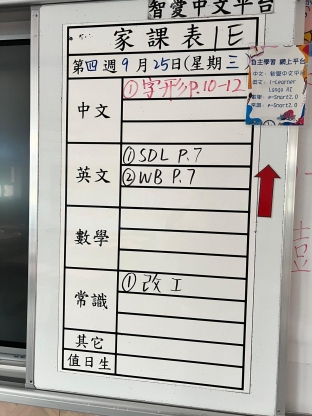 智愛中文平台
家課表 1E
第四週 9月25日(星期三)
中文
①字形P.10-12
英文
①SDL P.7
②WB P.7
數學
常識
①改工
其它
值日生
自主學習 網上平台
中文：智愛中文平台
英文：i-Learner
Lango AI
數學：e-Smart2.0
常識：e-Smart2.0